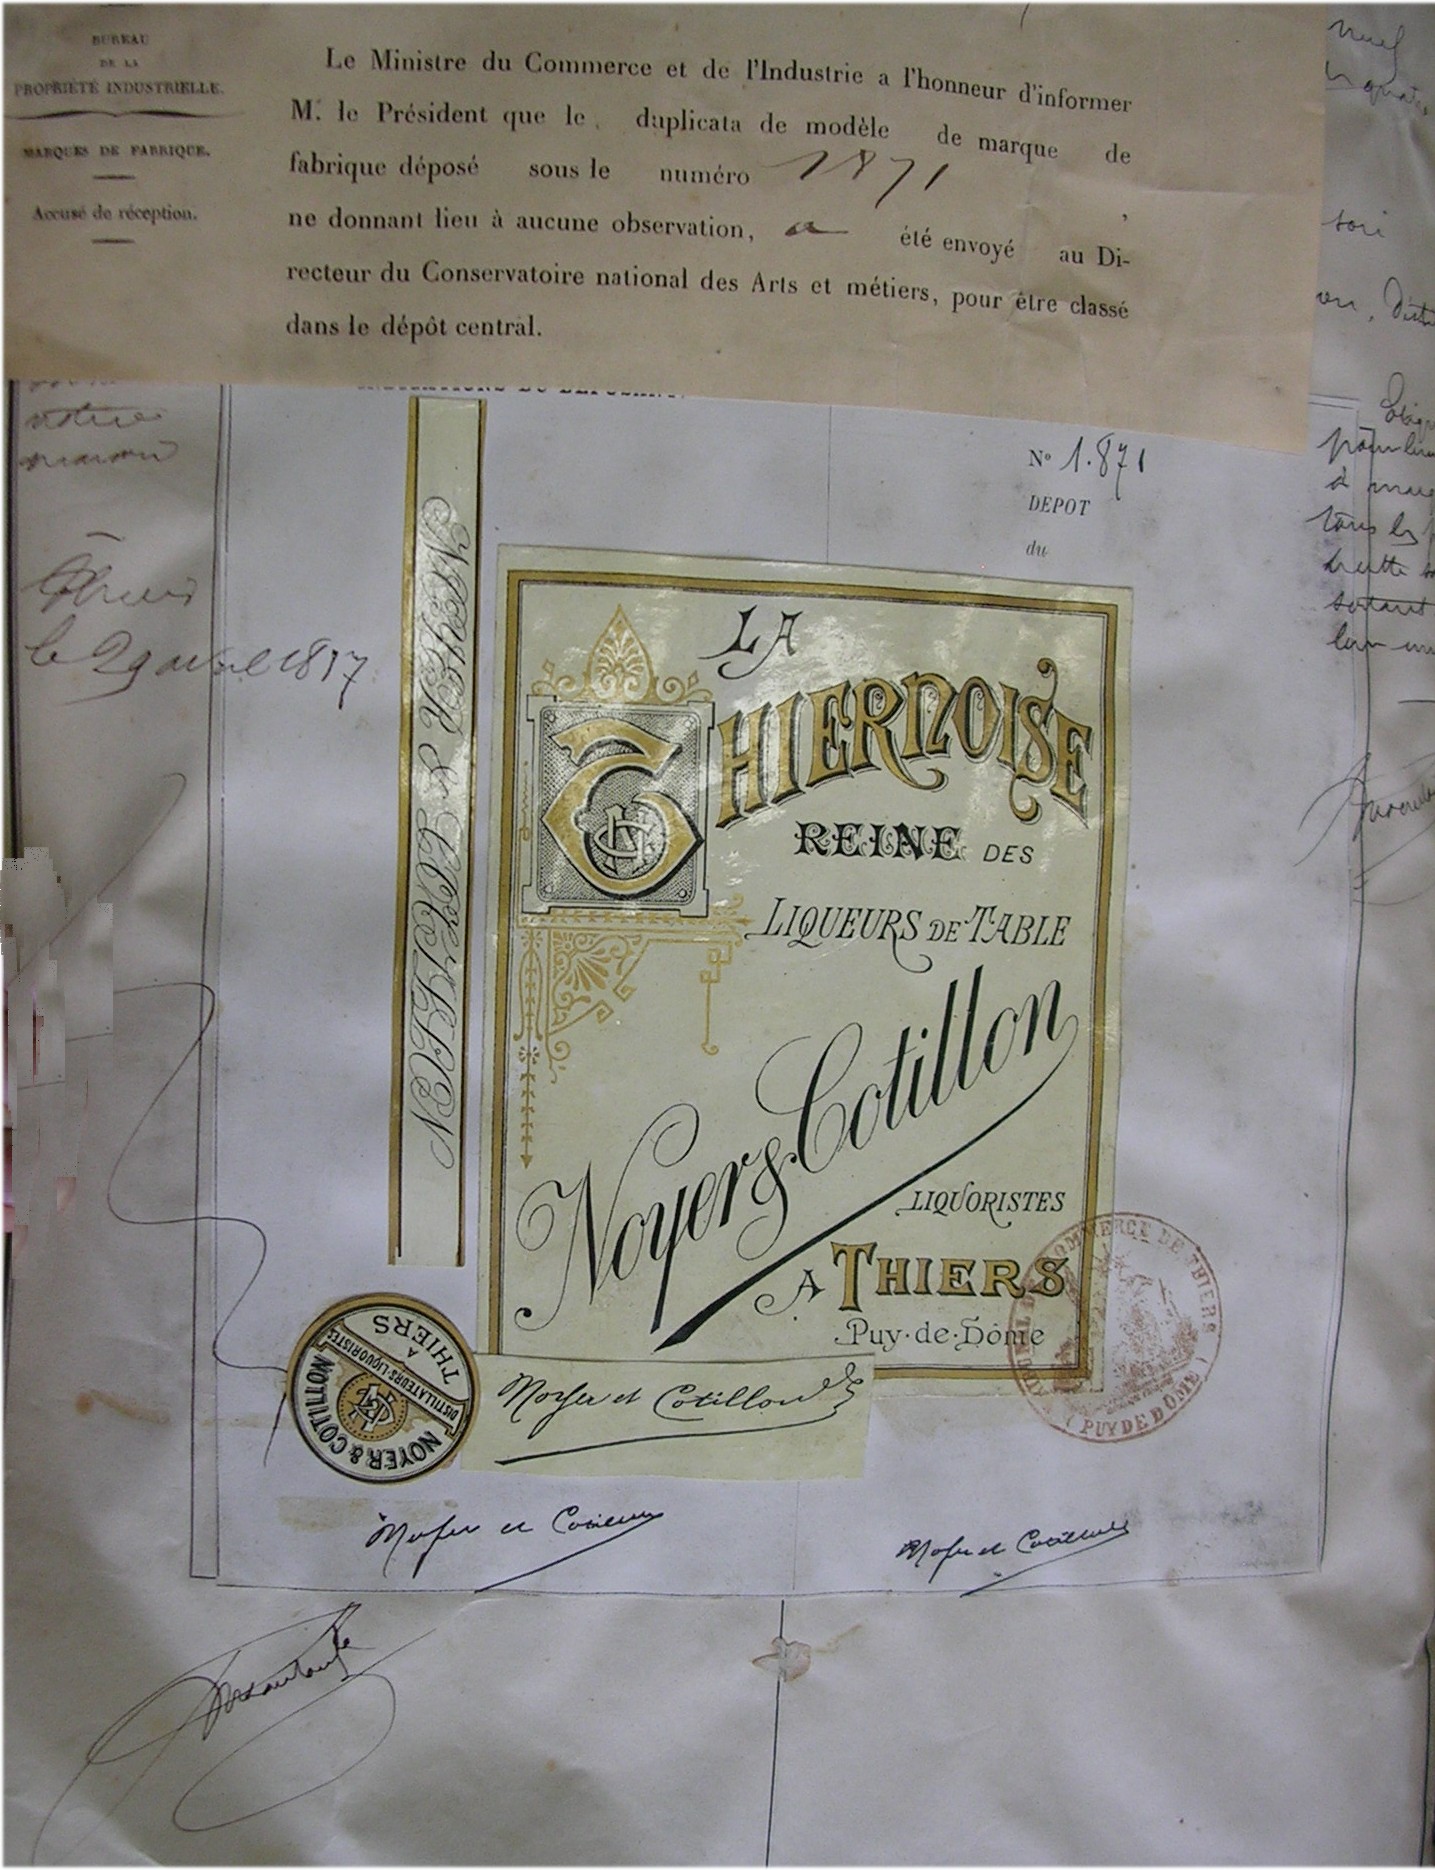 BUREAU
DE LA
PROPRIÉTÉ INDUSTRIELLE.
MARQUES DE FABRIQUE.
Accusé de réception.
Le Ministre du Commerce et de l'Industrie a l'honneur d'informer
M. le Président que le duplicata de modèle de marque de
fabrique déposé sous le numéro 1871,
ne donnant lieu à aucune observation, a été envoyé au Di-
recteur du Conservatoire national des Arts et métiers, pour être classé
dans le dépôt central.
notre
maison
le 29 avril 1897
Nº 1.871
DEPOT
du
NOYER & COTILLON
LA
THIERNOISE
REINE DES
LIQUEURS DE TABLE
Noyer & Cotillon
LIQUORISTES
A THIERS
Puy-de-Dôme
COMMERCE DE THIERS
(PUY DE DOME)
THIERS
A
DISTILLATEURS-LIQUORISTES
NOYER & COTILLON
Noyer et Cotillon
Noyer et Cotillon
Noyer et Cotillon